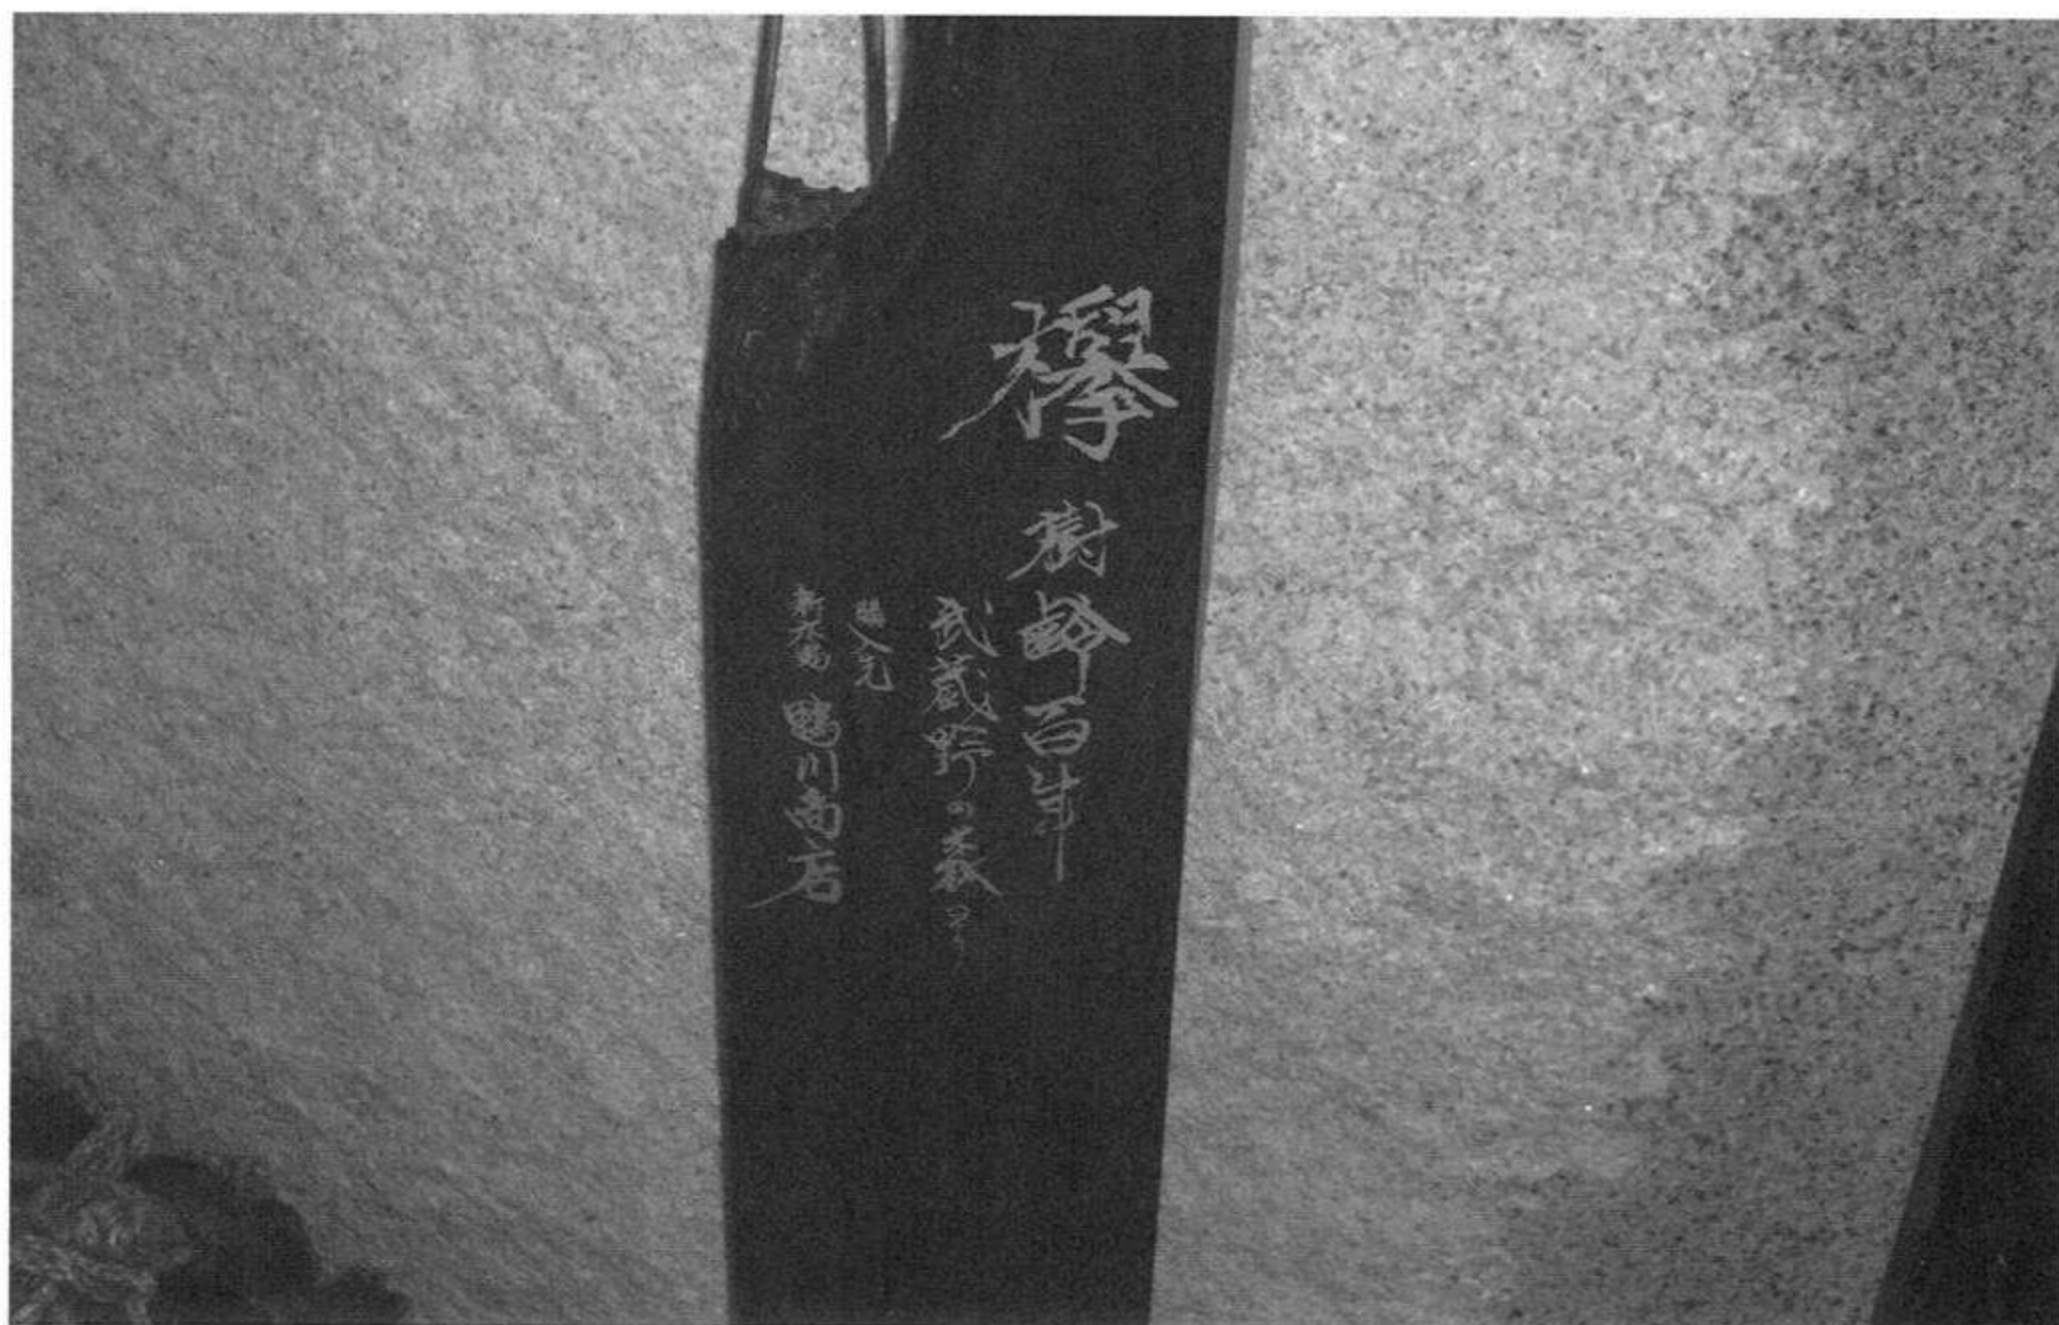 欅 樹齢百年
武蔵野の森より
購入元
新木場 鴨川商店